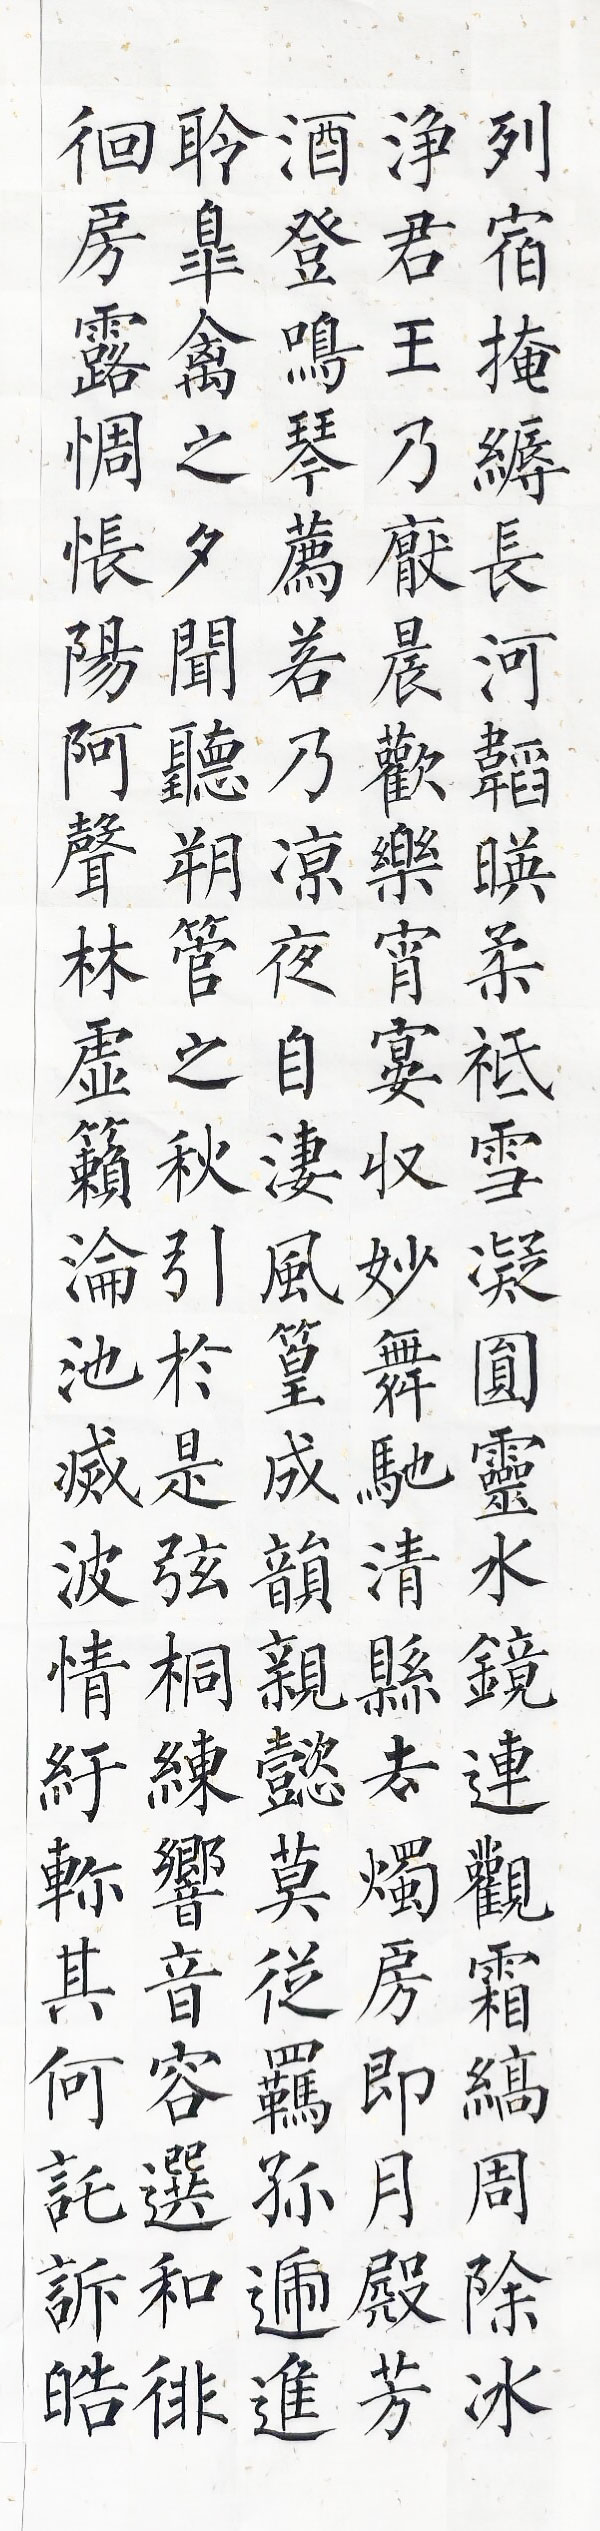 列宿掩縟長河韜暎柔祇雪凝圓靈水鏡連觀霜縞周除冰
淨君王乃厭晨歡樂宵宴収妙舞馳清縣去燭房即月殿芳
酒登鳴琴薦若乃凉夜自淒風篁成韻親懿莫從羈孤遞進
聆皐禽之夕聞聽朔管之秋引於是弦桐練響音容選和徘
徊房露惆悵陽阿聲林虛籟淪池滅波情紆軫其何託訴皓